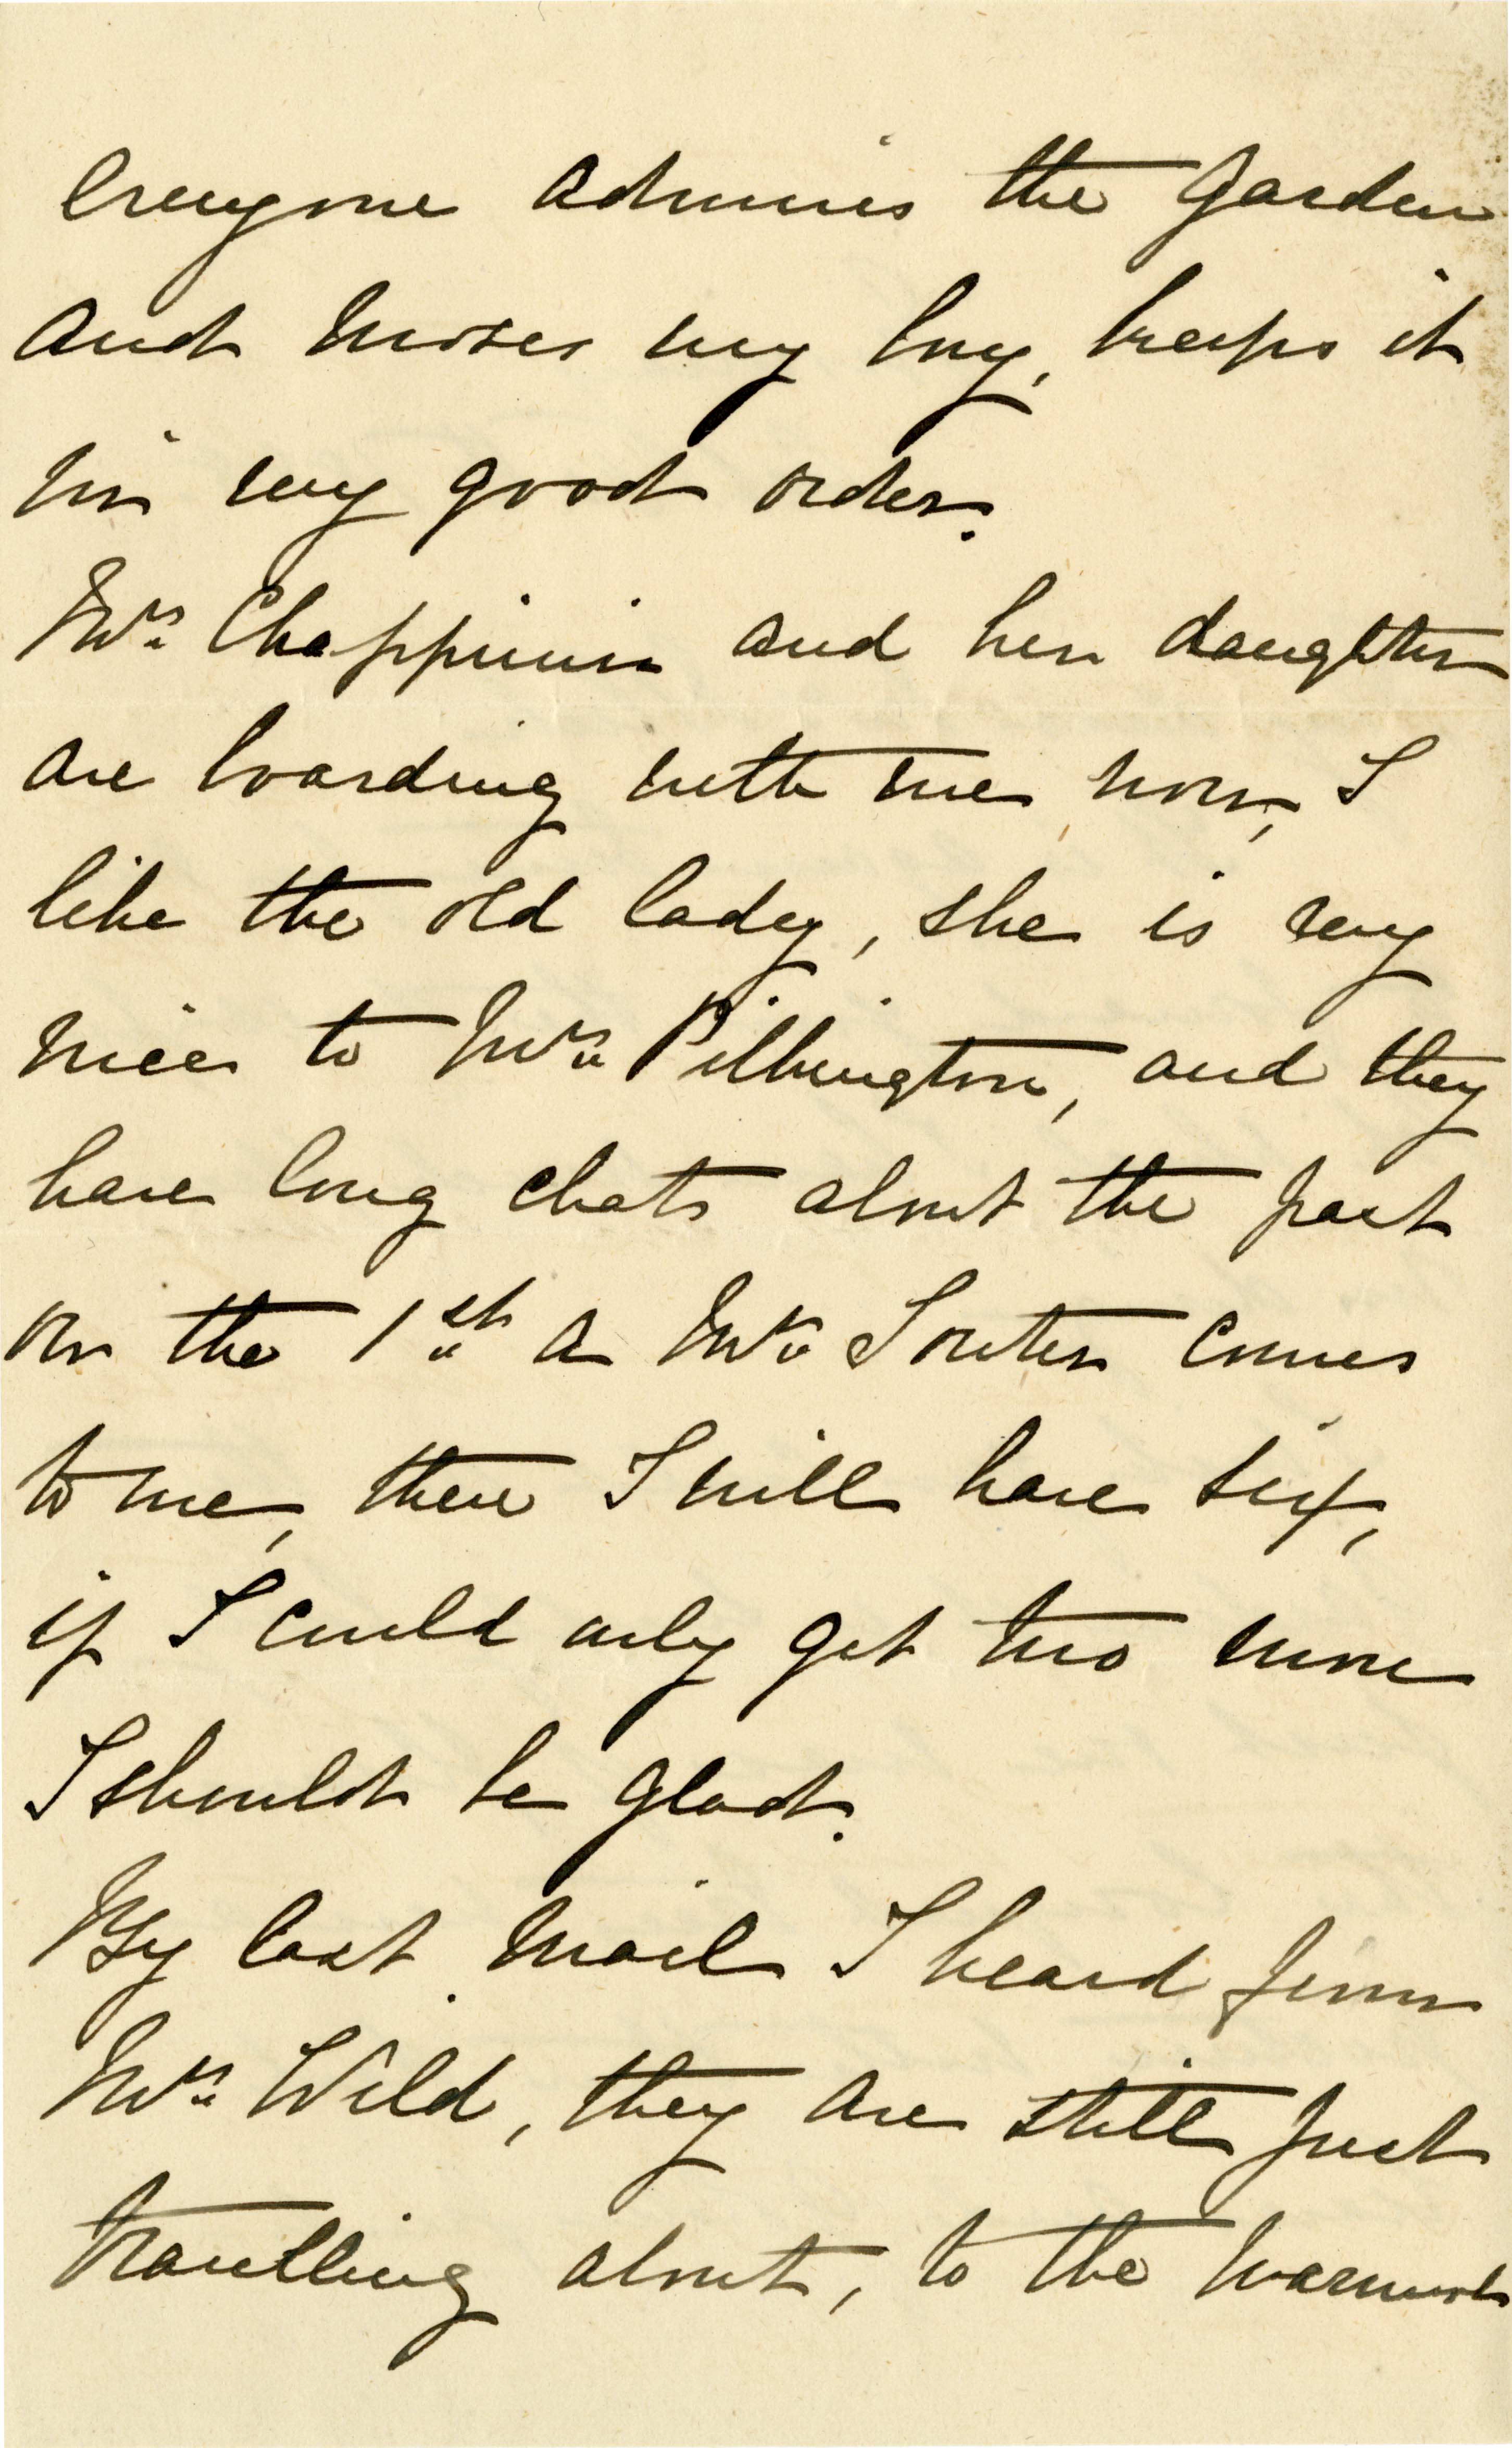 everyone admires the garden
and Moses my boy, keeps it
in very good order.
Mrs Chappinin and her daughter
are boarding with me now, I
like the old lady, she is very
nice to Mrs Pilkington, and they
have long chats about the past
on the 1st a Mr Souter comes
to me, then I will have six,
if I could only get two more
I should be glad.
By last mail I heard from
Mrs Wild, they are still just
travelling about, to the warmest